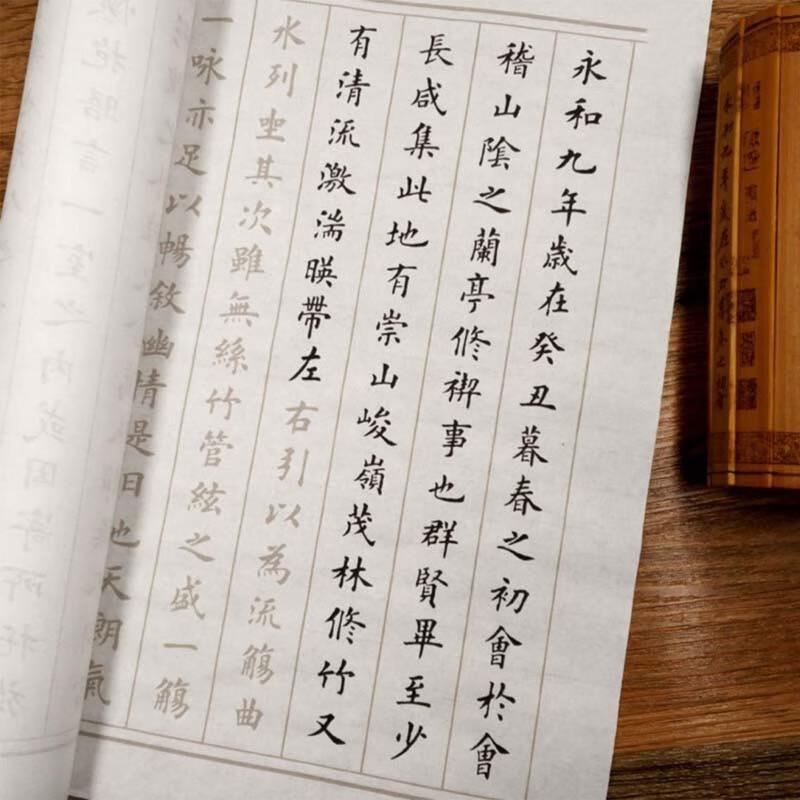 永和九年歲在癸丑暮春之初會於會
稽山陰之蘭亭修禊事也群賢畢至少
長咸集此地有崇山峻嶺茂林修竹又
有清流激湍暎帶左右引以為流觴曲
水列坐其次雖無絲竹管絃之盛一觴
一詠亦足以暢敘幽情是日也天朗氣
抱
言一室之內或因寄所托
永和九年歲在